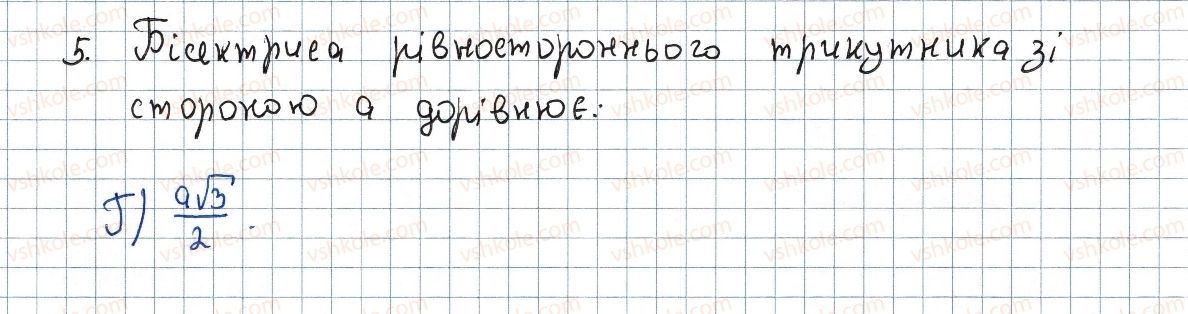 5. Бісектриса рівностороннього трикутника зі
стороною a дорівнює:
Г) a√3/2.